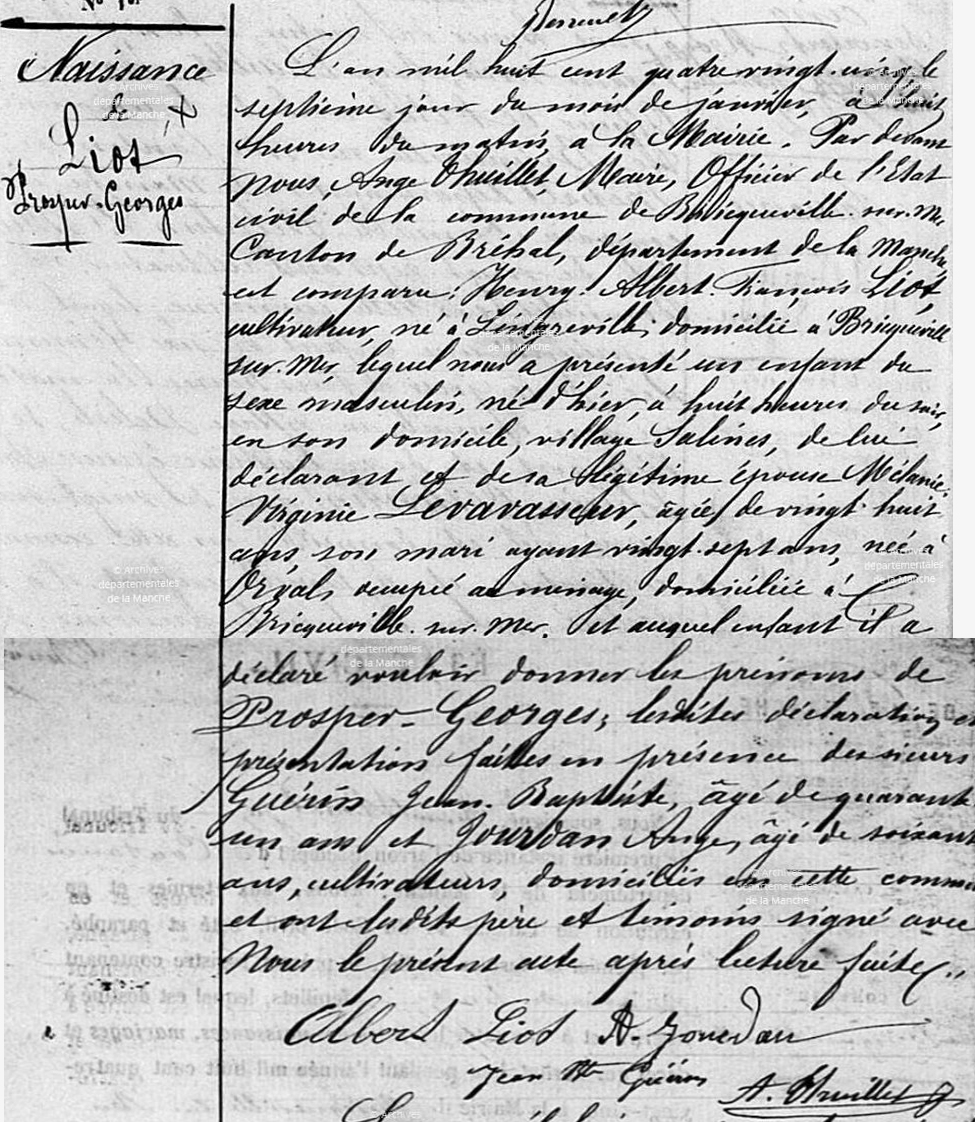 Naissance
Liot
Prosper-Georges
L'an mil huit cent quatre vingt-un, le
septième jour du mois de janvier, à huit
heures du matin, à la Mairie. Par devant
Nous, Ange Thuillet, Maire, Officier de l'Etat
civil de la commune de Bricqueville-sur-Mer
Canton de Bréhal, département de la Manche,
est comparu: Henry-Albert-François Liot,
cultivateur, né à Lingreville, domicilié à Bricqueville
sur-Mer, lequel nous a présenté un enfant du
sexe masculin, né d'hier, à huit heures du soir,
en son domicile, village Salines, de lui
déclarant et de sa légitime épouse Mélanie-
Virginie Levavasseur, âgée de vingt-huit
ans, son mari ayant vingt-sept ans, née à
Orval, occupée au ménage, domiciliée à
Bricqueville-sur-Mer. Et auquel enfant il a
déclaré vouloir donner les prénoms de
Prosper-Georges; lesdites déclaration et
présentation faites en présence des sieurs
Guérin Jean-Baptiste, âgé de quarante
un ans et Jourdan Ange, âgé de soixante
ans, cultivateurs, domiciliés en cette commune
et ont lesdits père et temoins signé avec
Nous le présent acte après lecture faite.
Albert Liot A. Jourdan
Jean Bte Guérin A. Thuillet